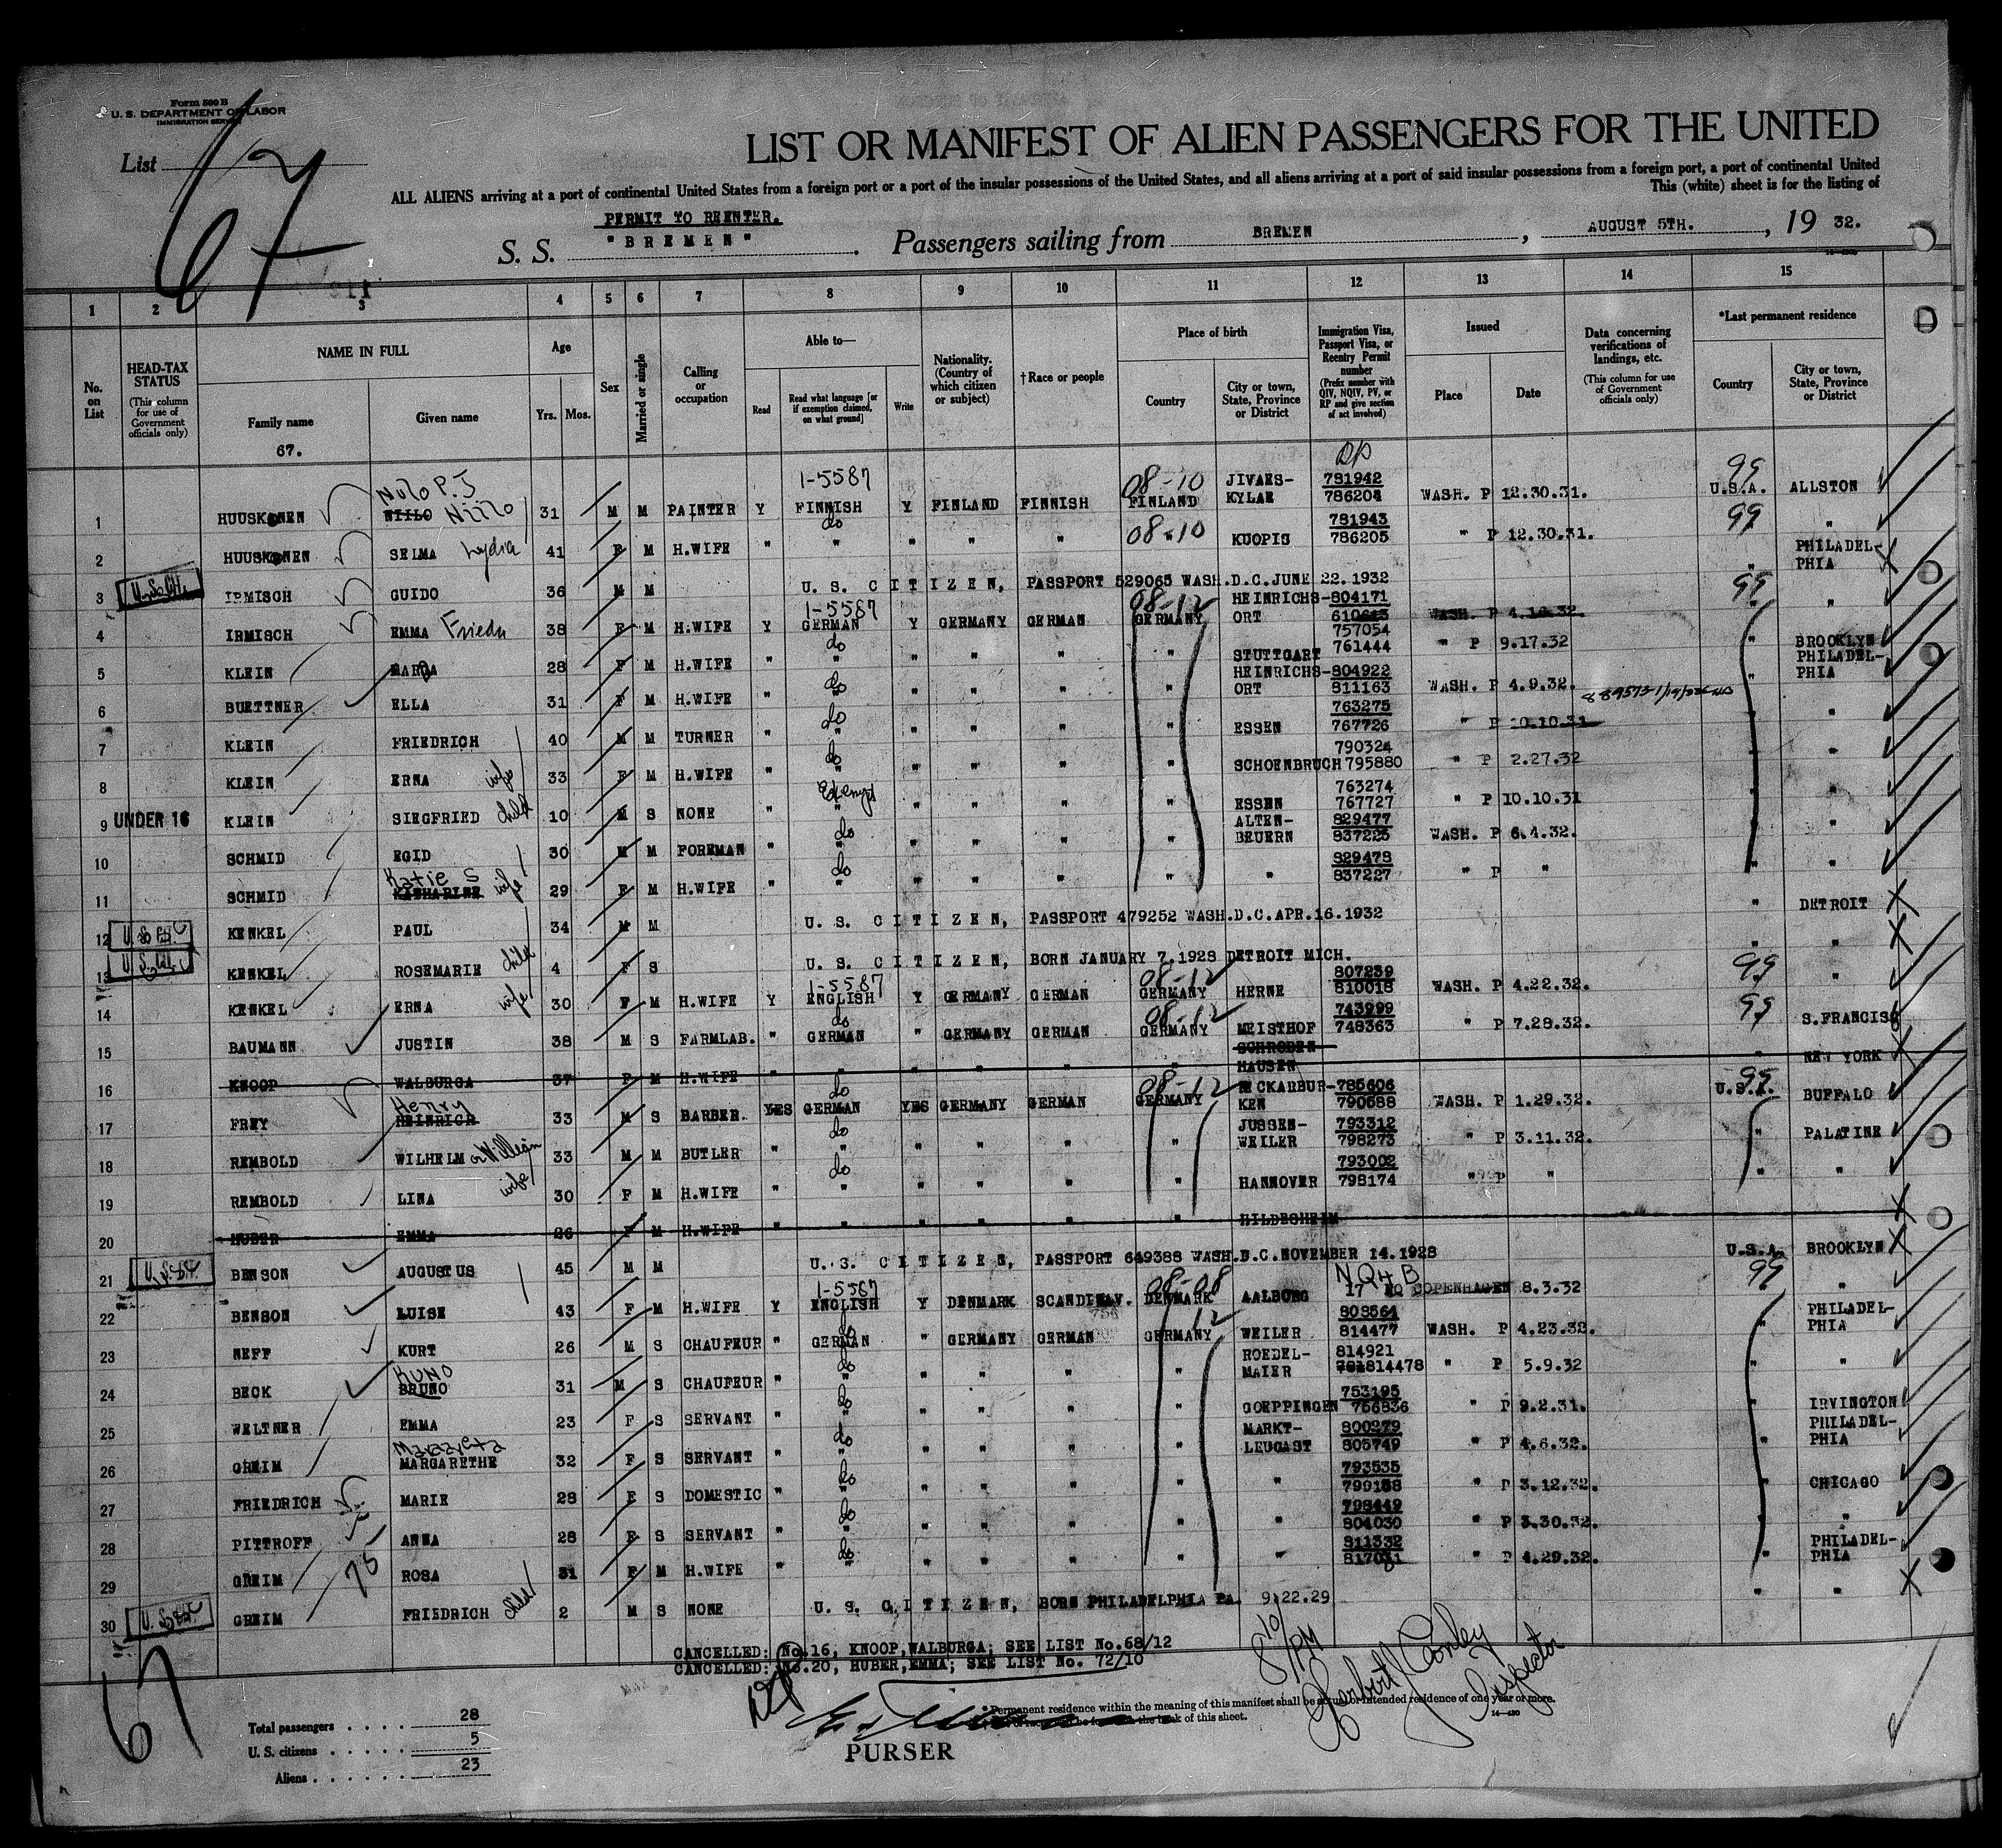 Form 500 B
U. S. DEPARTMENT OF LABOR
IMMIGRATION SERVICE
List 67
LIST OR MANIFEST OF ALIEN PASSENGERS FOR THE UNITED
ALL ALIENS arriving at a port of continental United States from a foreign port or a port of the insular possessions of the United States, and all aliens arriving at a port of said insular possessions from a foreign port, a port of continental United
This (white) sheet is for the listing of
PERMIT TO REENTER.
S. S. "BREMEN". Passengers sailing from BREMEN, AUGUST 5TH., 19 32.
1 2 3 4 5 6 7 8 9 10 11 12 13 14 15
No. on List
HEAD-TAX STATUS (This column for use of Government officials only)
NAME IN FULL
Family name
Given name
Age
Yrs. Mos.
Sex
Married or single
Calling or occupation
Able to—
Read
Read what language [or if exemption claimed, on what ground]
Write
Nationality. (Country of which citizen or subject)
†Race or people
Place of birth
Country
City or town, State, Province or District
Immigration Visa, Passport Visa, or Reentry Permit number (Prefix number with QIV, NQIV, PV, or RP and give section of act involved)
Issued
Place
Date
Data concerning verifications of landings, etc. (This column for use of Government officials only)
*Last permanent residence
Country
City or town, State, Province or District
67.
1 HUUSKONEN NIILO Niilo P.J 31 M M PAINTER Y 1-5587 FINNISH Y FINLAND FINNISH 08-10 FINLAND JIVAES-KYLAE RP 781942 786204 WASH. P 12.30.31. 99 U.S.A. ALLSTON
2 HUUSKONEN SELMA Lydia 41 F M H.WIFE " do " " " " 08-10 KUOPIS 781943 786205 " P 12.30.31. 99 "
3 U.S. IRMISCH GUIDO 36 M M U. S. CITIZEN, PASSPORT 529065 WASH.D.C.JUNE 22.1932 " PHILADEL-PHIA
4 IRMISCH EMMA Frieda 38 F M H.WIFE Y 1-5587 GERMAN Y GERMANY GERMAN 08-12 GERMANY HEINRICHS-ORT 804171 610613 WASH. P 4.14.32. 99 "
5 KLEIN MARTA 28 F M H.WIFE " do " " " " " STUTTGART 757054 761444 " P 9.17.32 " BROOKLYN
6 BUETTNER ELLA 31 F M H.WIFE " do " " " " " HEINRICHS-ORT 804922 811163 WASH. P 4.9.32. " PHILADEL-PHIA
7 KLEIN FRIEDRICH 40 M M TURNER " do " " " " " ESSEN 763275 767726 " P 10.10.31 " "
8 KLEIN ERNA wife 33 F M H.WIFE " do " " " " " SCHOENBRUCH 790324 795880 " P 2.27.32 " "
9 UNDER 16 KLEIN SIEGFRIED child 10 M S NONE " Exempt " " " " " ESSEN 763274 767727 " P 10.10.31 " "
10 SCHMID EGID 30 M M FOREMAN " do " " " " " ALTEN-BEUERN 829477 837225 WASH. P 6.4.32. " "
11 SCHMID KATHARINE Katie S wife 29 F M H.WIFE " do " " " " " " 829478 837227 " P " " "
12 U.S. KENKEL PAUL 34 M M U. S. CITIZEN, PASSPORT 479252 WASH.D.C.APR.16.1932 " DETROIT
13 U.S. KENKEL ROSEMARIE child 4 F S U. S. CITIZEN, BORN JANUARY 7.1928 DETROIT MICH. " "
14 KENKEL ERNA wife 30 F M H.WIFE Y 1-5587 ENGLISH Y GERMANY GERMAN 08-12 GERMANY HERNE 807239 810018 WASH. P 4.22.32. 99 "
15 BAUMANN JUSTIN 38 M S FARMLAB. " do GERMAN " GERMANY GERMAN 08-12 GERMANY MEISTHOF 743999 748363 " P 7.28.32. 99 S.FRANCISC
16 KNOOP WALBURGA 37 F M H.WIFE " " " " " " SCHRODEN HAUSEN " NEW YORK
17 FREY HEINRICH Henry 33 M S BARBER YES do GERMAN YES GERMANY GERMAN 08-12 GERMANY NECKARBUR-KEN 785606 790588 WASH. P 1.29.32. 99 U.S.A. BUFFALO
18 REMBOLD WILHELM or William 33 M M BUTLER " do " " " " " JUSSEN-WEILER 793312 798273 " P 3.11.32. " PALATINE
19 REMBOLD LINA wife 30 F M H.WIFE " do " " " " " HANNOVER 793002 798174 " P " " "
20 HUBER EMMA 26 F M H.WIFE " " " " " " HILDESHEIM
21 U.S. BENSON AUGUSTUS 45 M M U. S. CITIZEN, PASSPORT 649388 WASH.D.C.NOVEMBER 14.1928 U.S.A. BROOKLYN
22 BENSON LUISE 43 F M H.WIFE Y 1-5587 ENGLISH Y DENMARK SCANDINAV. 08-08 DENMARK AALBORG NQ4B 17 COPENHAGEN 8.3.32 99 "
23 NEFF KURT 26 M S CHAUFEUR " do GERMAN " GERMANY GERMAN 12 GERMANY WEILER 808561 814477 WASH. P 4.23.32. " PHILADEL-PHIA
24 BECK BRUNO KUNO 31 M S CHAUFEUR " do " " " " " ROEDEL-MAIER 814921 814478 " P 5.9.32 " "
25 WELTNER EMMA 23 F S SERVANT " do " " " " " GOEPPINGEN 753195 756836 " P 9.2.31. " IRVINGTON
26 GREIM MARGARETHE Margareta 32 F S SERVANT " do " " " " " MARKT-LEUGAST 800279 805749 " P 4.6.32. " PHILADEL-PHIA
27 FRIEDRICH MARIE 28 F S DOMESTIC " do " " " " " " 793535 799188 " P 3.12.32. " CHICAGO
28 PITTROFF ANNA 28 F S SERVANT " do " " " " " " 798449 804030 " P 3.30.32. " "
29 GREIM ROSA 31 F M H.WIFE " do " " " " " " 811332 " P 4.29.32. " PHILADEL-PHIA
30 U.S. GREIM FRIEDRICH child 2 M S NONE U. S. CITIZEN, BORN PHILADELPHIA PA. 9.22.29 " "
CANCELLED: No.16, KNOOP,WALBURGA; SEE LIST No.68/12
CANCELLED: No.20, HUBER,EMMA; SEE LIST No. 72/10
67
Total passengers . . . . 28
U. S. citizens . . . . . 5
Aliens . . . . . . 23
*Permanent residence within the meaning of this manifest shall be actual or intended residence of one year or more.
of this sheet.
PURSER
Herbert J Conley
Inspector